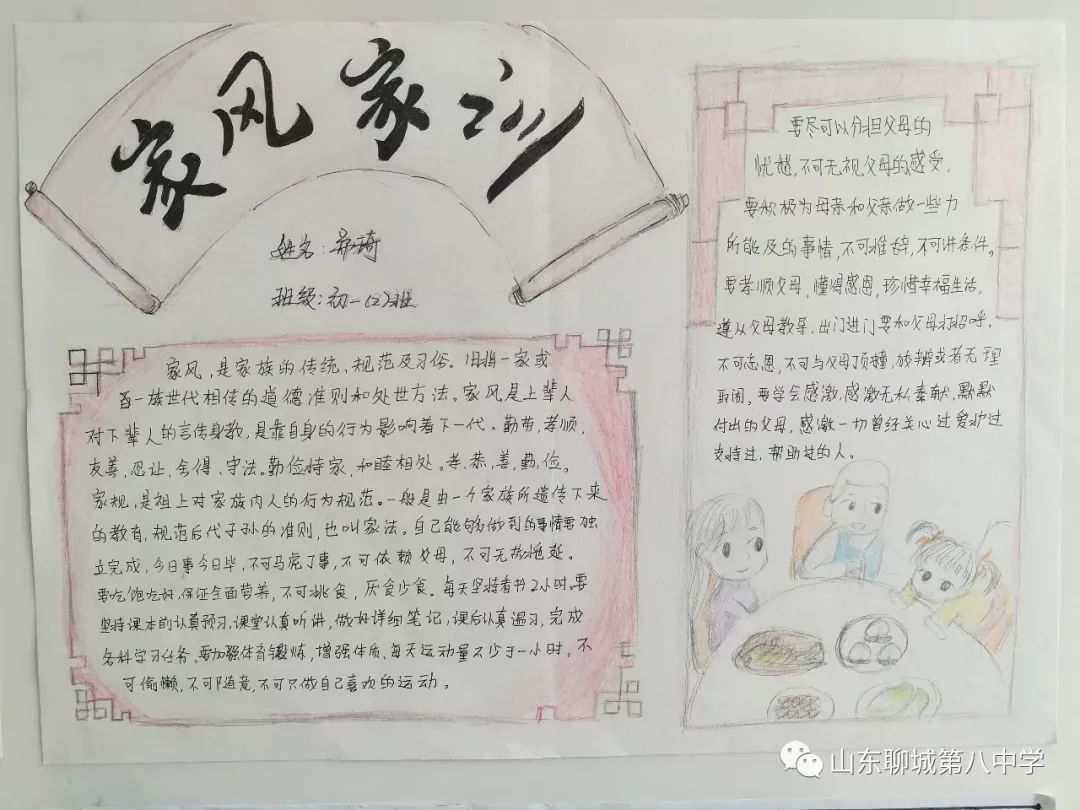 家风家训
姓名：乔琦
班级：初一(2)班
家风，是家族的传统、规范及习俗。旧指一家或
百一族世代相传的道德准则和处世方法。家风是上辈人
对下辈人的言传身教，是靠自身的行为影响着下一代。勤劳，孝顺，
友善，忍让、舍得、守法。勤俭持家，和睦相处。孝、恭，善，勤，俭。
家规，是祖上对家族内人的行为规范。一般是由一个家族所遗传下来
的教育，规范后代子孙的准则，也叫家法。自己能够做到的事情要独
立完成，今日事今日毕，不可马虎了事，不可依赖父母，不可无故拖延。
要吃饱吃好，保证全面营养，不可挑食，厌食少食。每天坚持看书2小时。要
坚持课本前认真预习，课堂认真听讲，做好详细笔记，课后认真温习，完成
各科学习任务。要加强体育锻炼，增强体质、每天运动量不少于一小时，不
可偷懒，不可随意，不可只做自己喜欢的运动。
要尽可以分担父母的
忧愁，不可无视父母的感受，
要积极为母亲和父亲做一些力
所能及的事情，不可推辞，不可讲条件。
要孝顺父母，懂得感恩，珍惜幸福生活，
遵从父母教导，出门进门要和父母打招呼，
不可忘恩，不可与父母顶撞，放辩或者无理
取闹。要学会感激，感激无私奉献，默默
付出的父母，感激一切曾经关心过爱护过
支持过，帮助过的人。
山东聊城第八中学